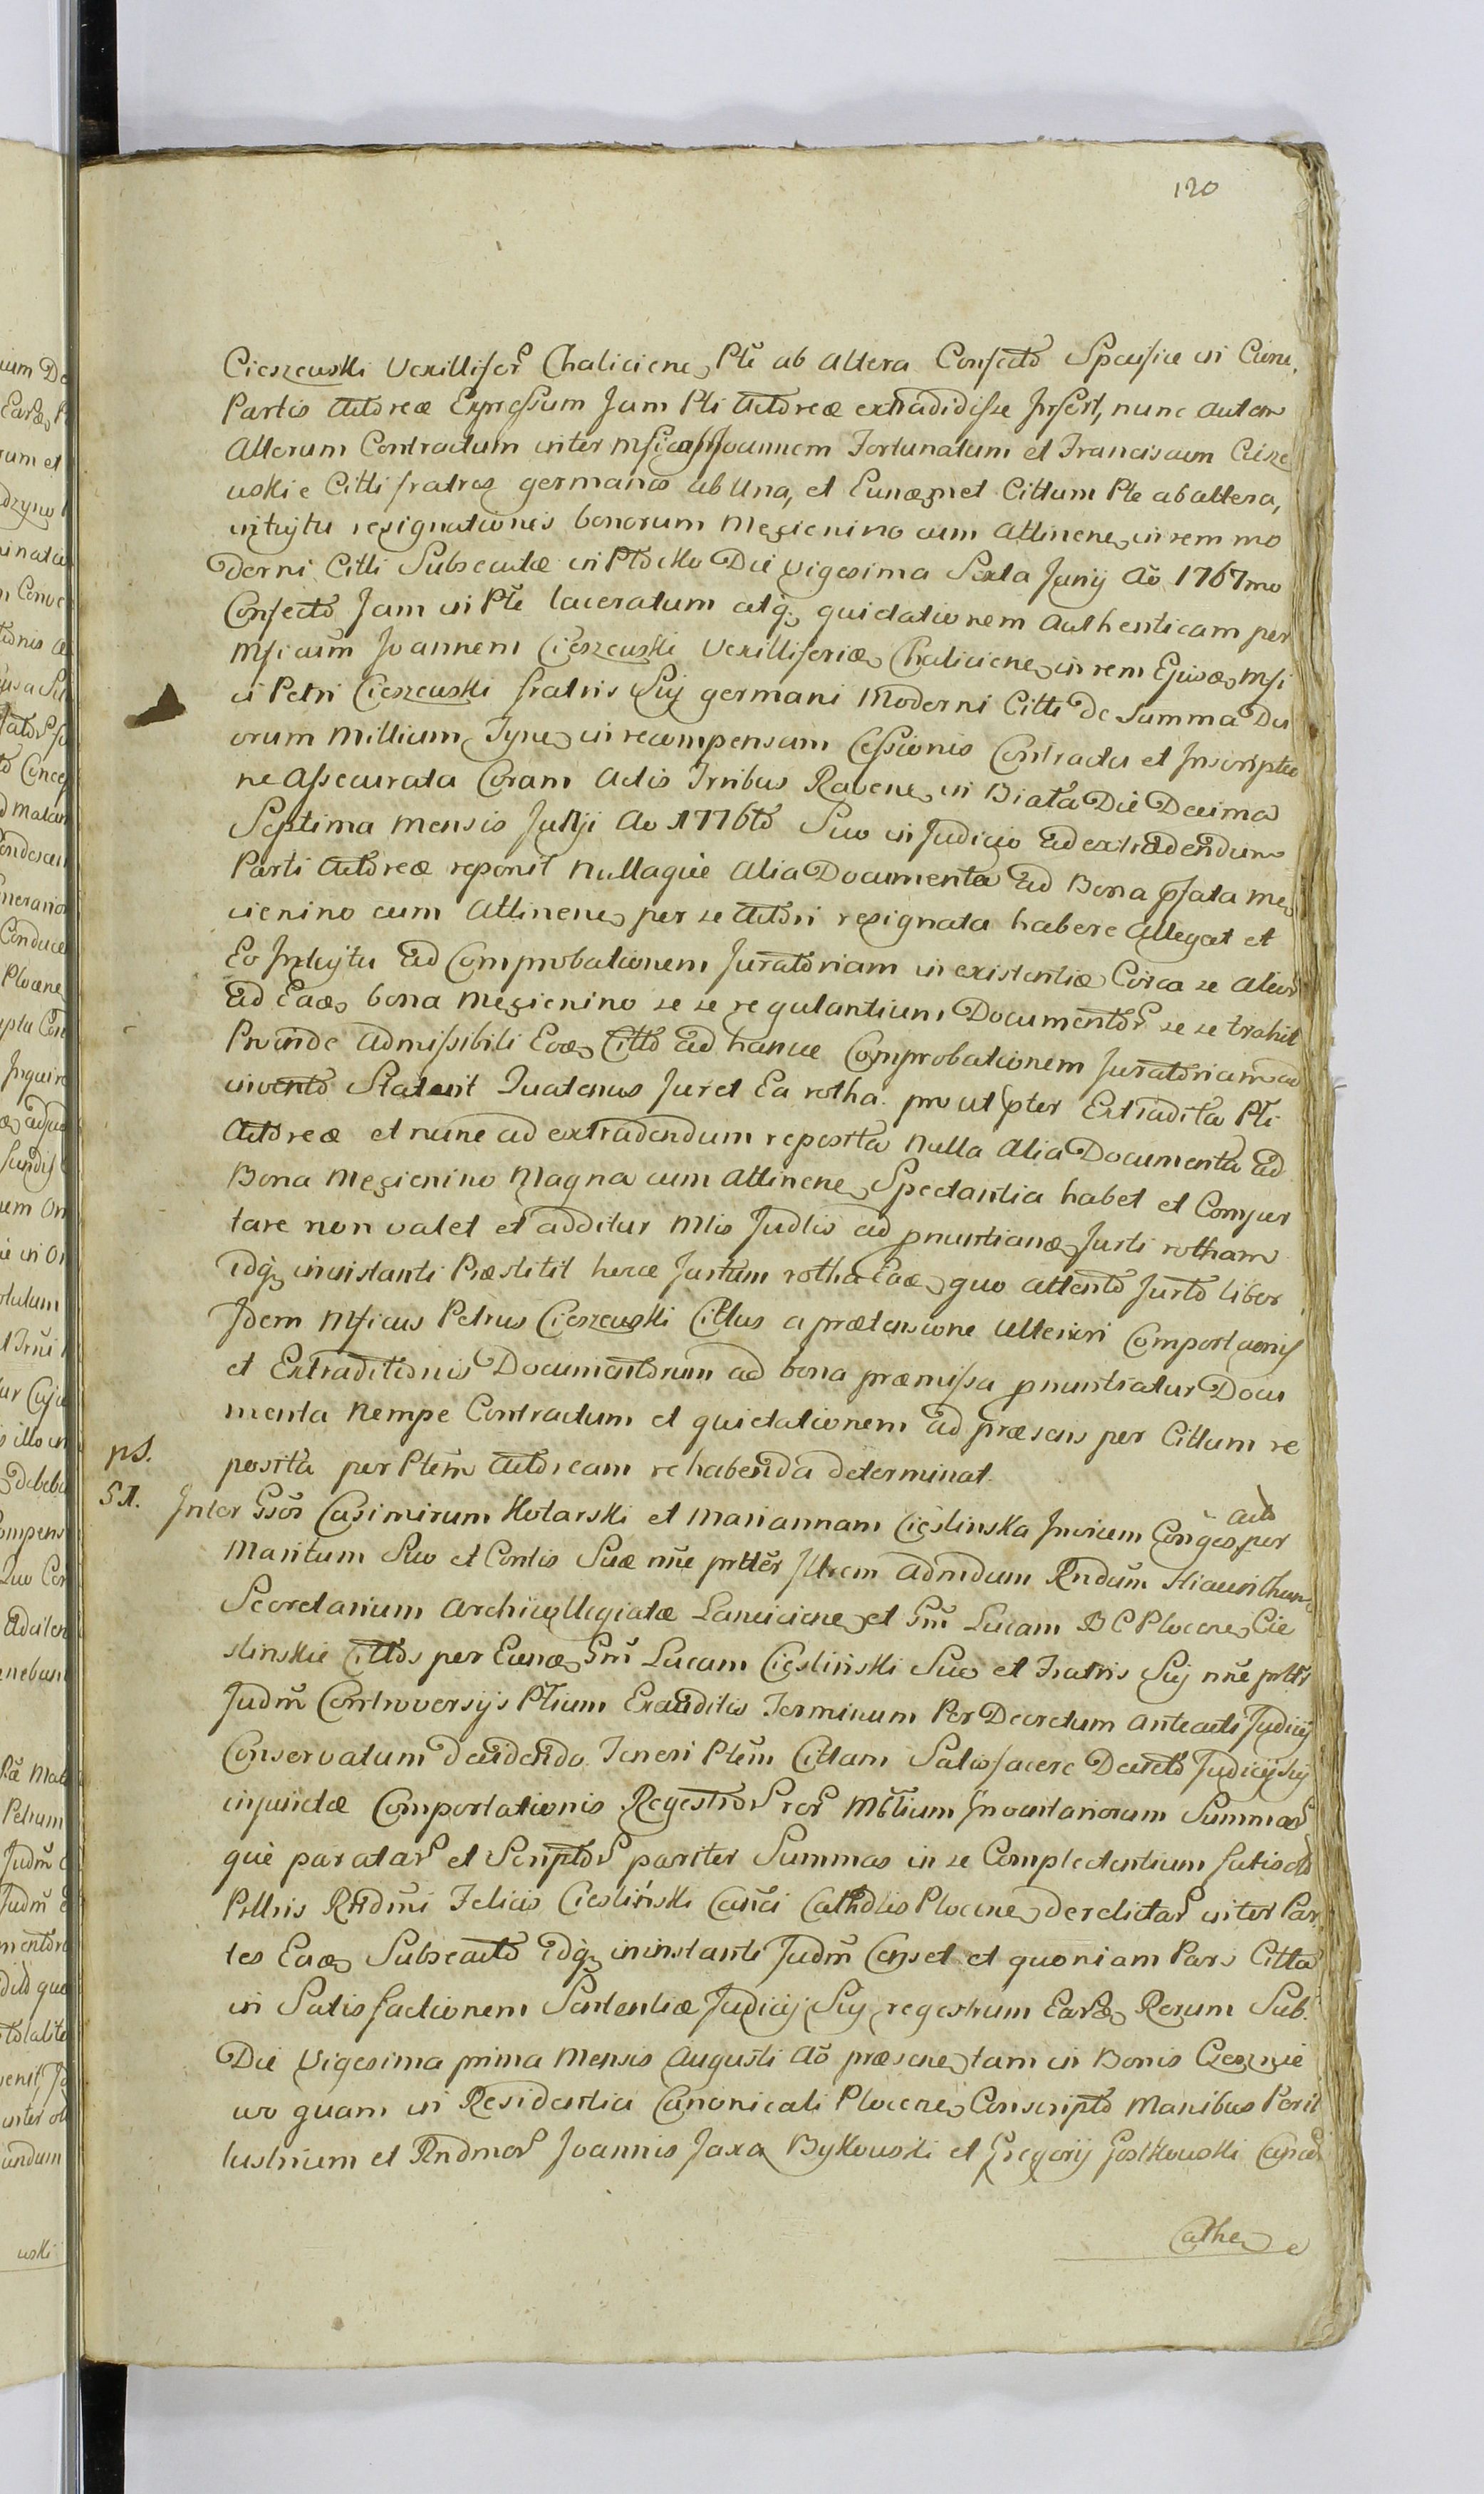 120
Cieszewski Vexillifer Chaliciene, Pte ab altera Confecto Specifice in Ciene,
Partis Actoreæ Expressum Jam Pti Actoreæ extradidisse Infert, nunc autem
Alterum Contractum inter Mficos Joannem Fortunatum et Franciscum Ciesze
wskie Citti fratres germanos ab Una, et Eundmet Cittum Pte ab altera,
intuytu resignationis bonorum Mezienino cum attinene, in rem mo
derni Citti Subsecutæ in Ptocko Die Vigesima Sexta Junij Ao 1767mo
Confecto Jam in Pte laceratum atq, quietationem Authenticam per
Mficum Joannem Cieszewski Vexilliferiæ Chaliciene, in rem Ejusd, Mfi
ci Petri Cieszewski fratris Suj germani Moderni Citti de Summa Du
orum Millium, Tyne, in recompensam Cessionis Contractu et Inscriptio
ne Assecurata Coram Actis Trribus Ravene, in Biata Die Decima
Septima Mensis Julji Ao 1776to Suo in Judicio ad extradendum
Parti Actoreæ reponit Nullaque Alia Documenta ad Bona pfata Me,
zienino cum Attinene, per se Actori resignata habere allegat et
Eo Intuytu ad Comprobationem Juratoriam in existentiæ Circa se alior
ad Ead, bona Mezienino se se regulantium Documentor se se trahit
Proinde admissibili Eod, Citto ad hance Comprobationem Juratoriam ad
invento Statuit Quatenus Juret Ea rotha. prout pter Extradita Pti
Actoreæ et nunc ad extradendum reposita Nulla Alia Documenta ad
Bona Mezienino Magna cum Attinene, Spectantia habet et Compor
tare non valet et additur Mlis Judlis ad pnuntiand, Jurti rotham
idq, in instanti Præstitit herce Jurtum rotha Ead, quo attento Jurto liber
Idem Mficus Petrus Cieszewski Cittus a prætensione Ulteriori Comportaonis
et Extraditionis Documentorum ad bona præmissa pnuntiatur Docu
menta Nempe Contractum et quietationem ad præsens per Cittum re
posita per Ptem Actoream rehabenda determinat.
pd.
51. Inter Gsos Casimirum Kotarski et Mariannam Cieslinska Invicem Conges, per Acto
Maritum Suo et Contis Suæ nne prtter Itrem Admdum Rndum Hiacinthum
Secretarium Archicollegiatæ Lanciciene, et Gm Lucam B C Plocene, Cie
slinskie Cittos per Eund, Gm Lucam Cieslinski Suo et Fratris Suj nne prttr
Judm Controversijs Ptium Exauditis Terminum Per Decretum anteacti Judicij
Conservatum decidendo Teneri Ptem Cittam Satisfacere Decreto Judicij Suj
injunctæ Comportationis Regestror rer Mblium Inventariorum Summar
que paratar et Scriptor pariter Summas in se Complectentium satis
Pttris Rndmi Felicis Cieslinski Canci Cathdlis Plocene, derelictar inter Par
tes Ead, Subsecuto idq, ininstanti Judm Censet et quoniam Pars Citta
in Satisfactionem Sententiæ Judicij Suj, regestrum Eard, Rerum Sub.
Die Vigesima prima Mensis Augusti Ao præsene, tam in Bonis Czeznie
wo quam in Residentia Canonicali Plocene, Conscripto Manibus Peril
lustrium et Rndmor Joannis Jaxa Bykowski et Gregorij Gostkowski Canor
Cathe